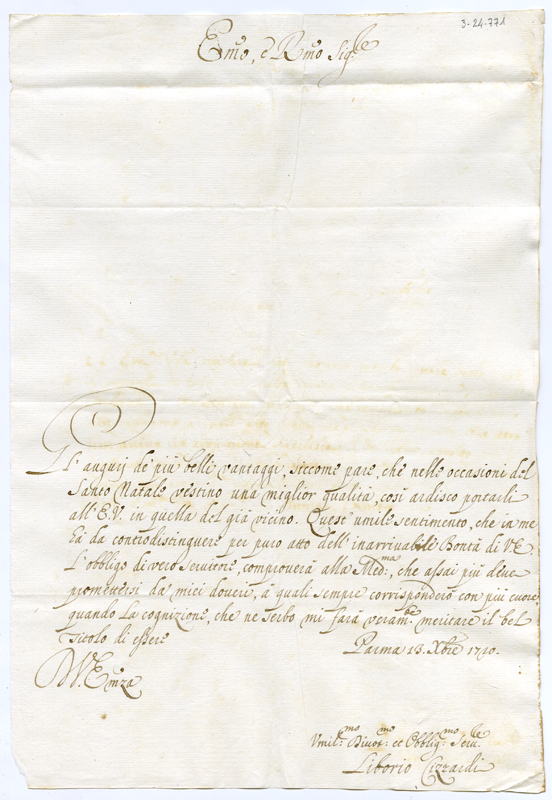 3-24-771
Emo, è Rmo Sig.re
Gl'augurij de più belli vantaggi, siccome pare, che nelle occasioni del
Santo Natale vestino una miglior qualità, così ardisco portarli
all'E.V. in quella del già vicino. Quest'umile sentimento, che in me
hà da controdistinguere per puro atto dell'inarrivabile Bontà di VE
L'obbligo di vero servitore, comproverà alla Med.ma, che assai più deve
promettersi da miei doveri, à quali sempre corrisponderò con più cuore,
quando la cognizione, che ne serbo mi farà veram.e meritare il bel
titolo di essere
Parma 13. Xbre 1710.
D V. Emza
Vmil.mo Divot.mo et Obblig.mo Serv.re
Liborio Cizzardi